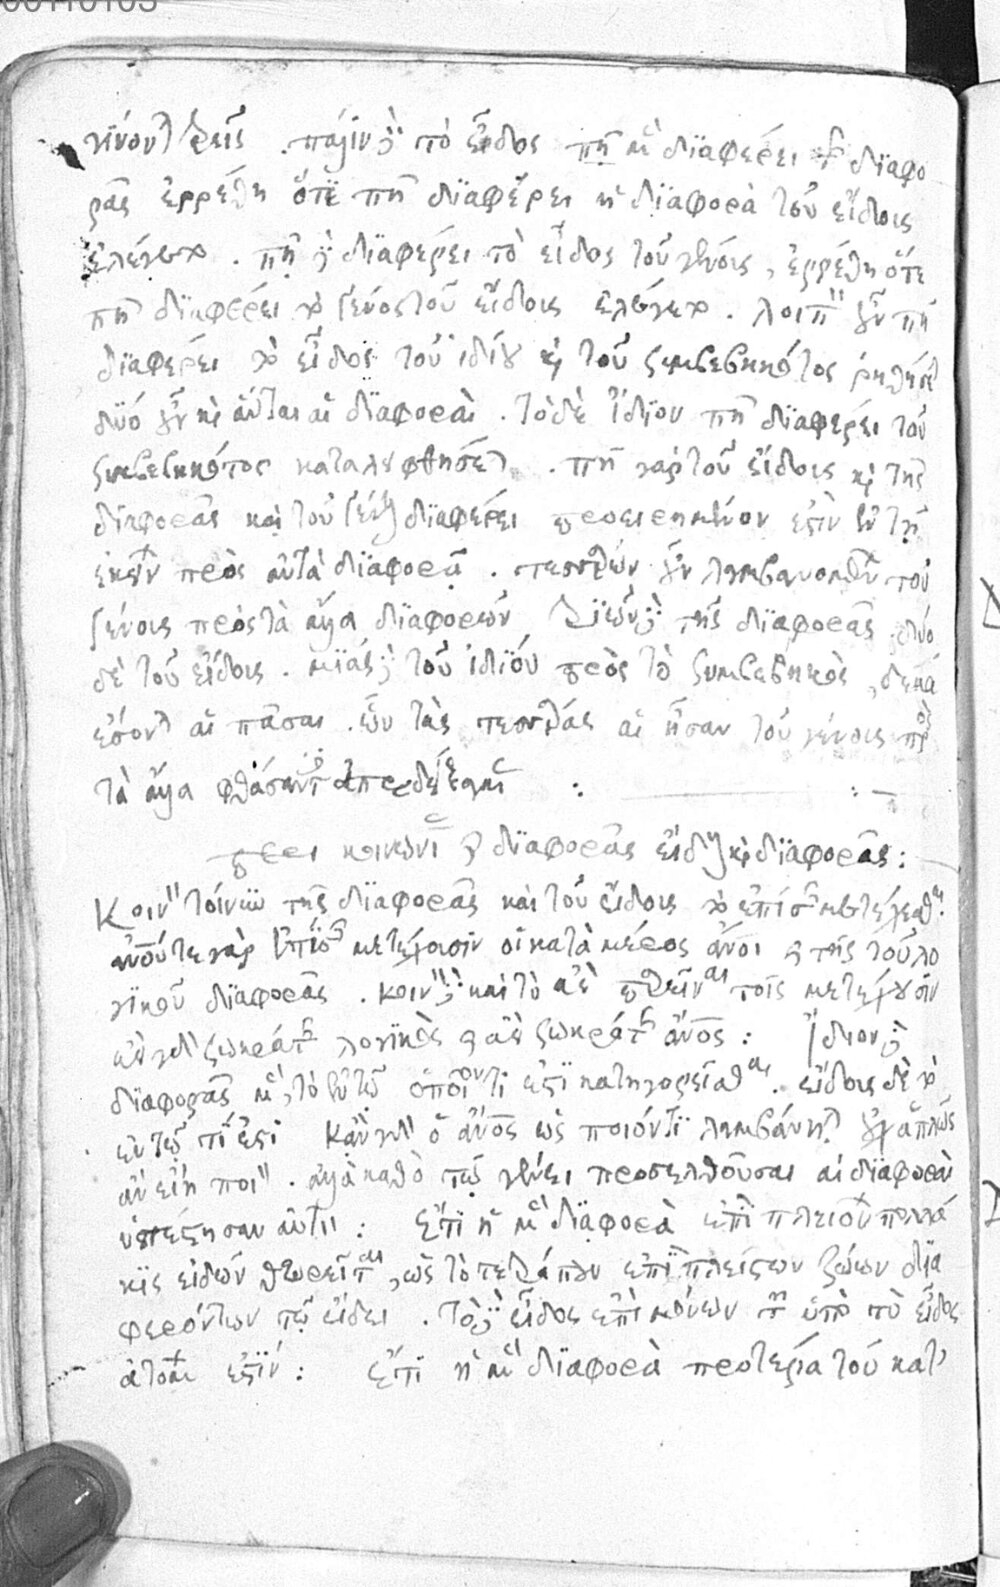 γίνονται τρεῖς . πάλιν δὲ τὸ εἶδος πῆ μὲν διαφέρει τῆς διαφο
ρᾶς ἐρρέθη ὅτε πῆ διαφέρει ἡ διαφορὰ τοῦ εἴδους
ἐλέγετο . πῆ δὲ διαφέρει τὸ εἶδος τοῦ γένους , ἐρρέθη ὅτε
πῆ διαφέρει τὸ γένος τοῦ εἴδους ἐλέγετο . λοιπὸν οὖν πῆ
διαφέρει τὸ εἶδος τοῦ ἰδίου καὶ τοῦ συμβεβηκότος ῥηθήσεται
δύο οὖν καὶ αὗται αἱ διαφοραὶ . τὸ δὲ ἴδιον πῆ διαφέρει τοῦ
συμβεβηκότος καταλειφθήσεται . πῆ γὰρ τοῦ εἴδους καὶ τῆς
διαφορᾶς καὶ τοῦ γένους διαφέρει προειρημένον ἐστὶν ἐν τῇ
ἐκείνων πρὸς αὐτὰ διαφορᾷ . τεσσάρων οὖν λαμβανομένων τοῦ
γένους πρὸς τὰ ἄλλα διαφορῶν τριῶν δὲ τῆς διαφορᾶς δύο
δὲ τοῦ εἴδους . μιᾶς δὲ τοῦ ἰδίου πρὸς τὸ συμβεβηκὸς , δέκα
ἔσονται αἱ πᾶσαι . ὧν τὰς τέσσαρας αἳ ἦσαν τοῦ γένους πρὸς
τὰ ἄλλα φθάσαντες ἀπεδείξαμεν :
περὶ κοινωνίας καὶ διαφορᾶς εἴδους καὶ διαφορᾶς :
Κοινὸν τοίνυν τῆς διαφορᾶς καὶ τοῦ εἴδους τὸ ἐπίσης μετέχεσθαι
ἀνθρώπου τε γὰρ ἐπίσης μετέχουσιν οἱ κατὰ μέρος ἄνθρωποι καὶ τῆς τοῦ λο
γικοῦ διαφορᾶς . κοινὸν δὲ καὶ τὸ ἀεὶ παρεῖναι τοῖς μετέχουσιν
ἀεὶ γὰρ σωκράτης λογικὸς καὶ ἀεὶ σωκράτης ἄνθρωπος : Ἴδιον δὲ
διαφορᾶς μὲν , τὸ ἐν τῷ ὁποῖόν τι ἐστὶ κατηγορεῖσθαι . εἴδους δὲ τὸ
ἐν τῷ τί ἐστι κἂν γὰρ ὁ ἄνθρωπος ὡς ποιόν τι λαμβάνηται οὐχ ἁπλῶς
ἂν εἴη ποιὸν . ἀλλὰ καθὸ τῷ γένει προσελθοῦσαι αἱ διαφοραὶ
ὑπέστησαν αὐτὸ : ἔτι ἡ μὲν διαφορὰ ἐπὶ πλειόνων πολλά
κις εἰδῶν θεωρεῖται , ὡς τὸ τετράπουν ἐπὶ πλείστων ζώων δια
φερόντων τῷ εἴδει . τὸ δὲ εἶδος ἐπὶ μόνων τῶν ὑπὸ τὸ εἶδος
ἀτόμων ἐστίν : ἔτι ἡ μὲν διαφορὰ προτέρα τοῦ κατ'